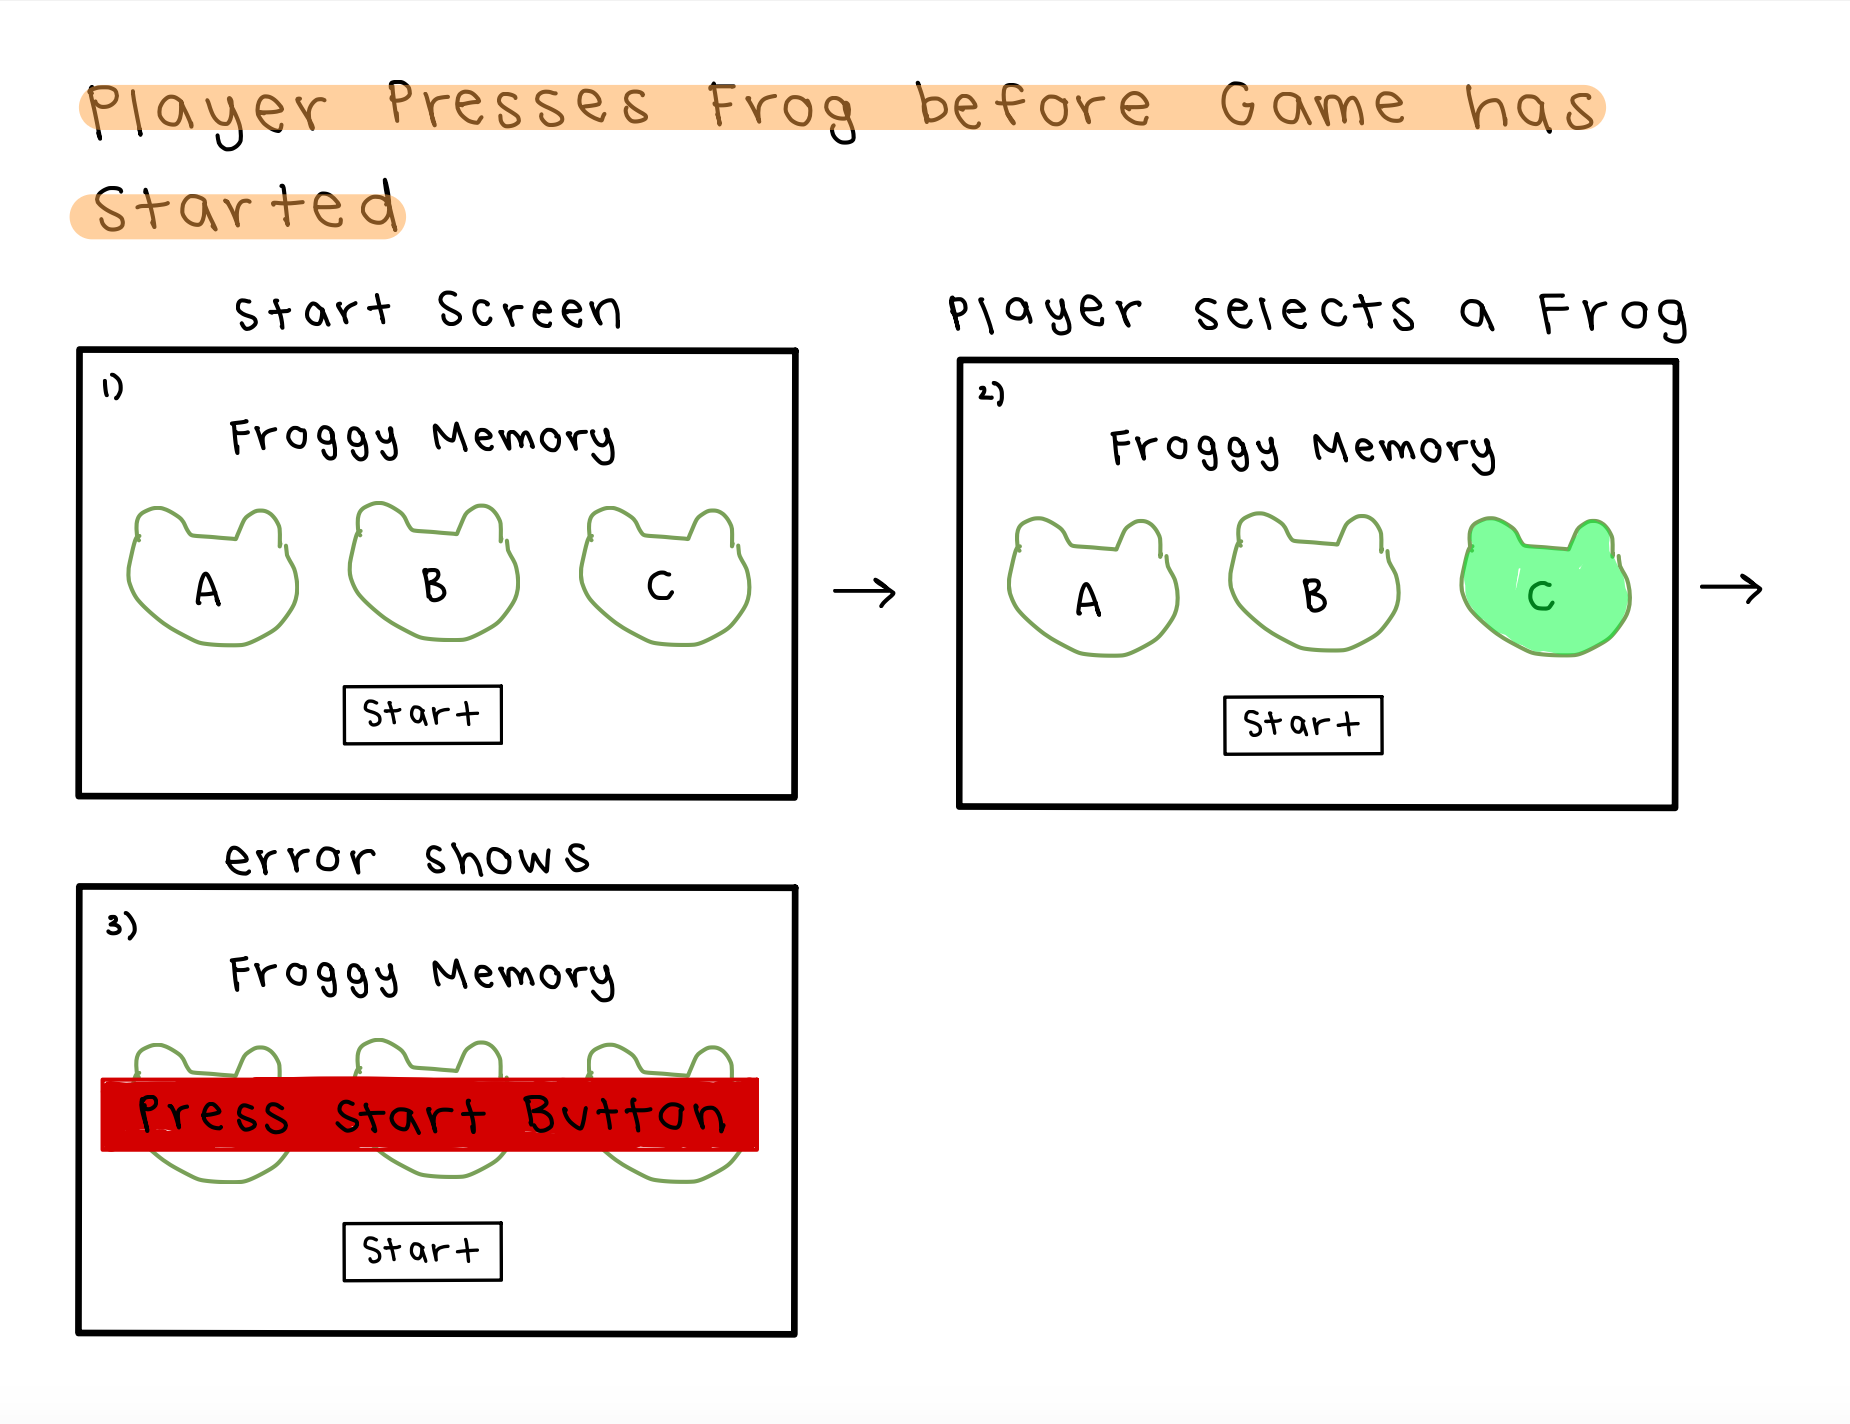 Player Presses Frog before Game has
Started
Start Screen
1)
Froggy Memory
A B C
Start
Player selects a Frog
2)
Froggy Memory
A B C
Start
error shows
3)
Froggy Memory
Press Start Button
Start